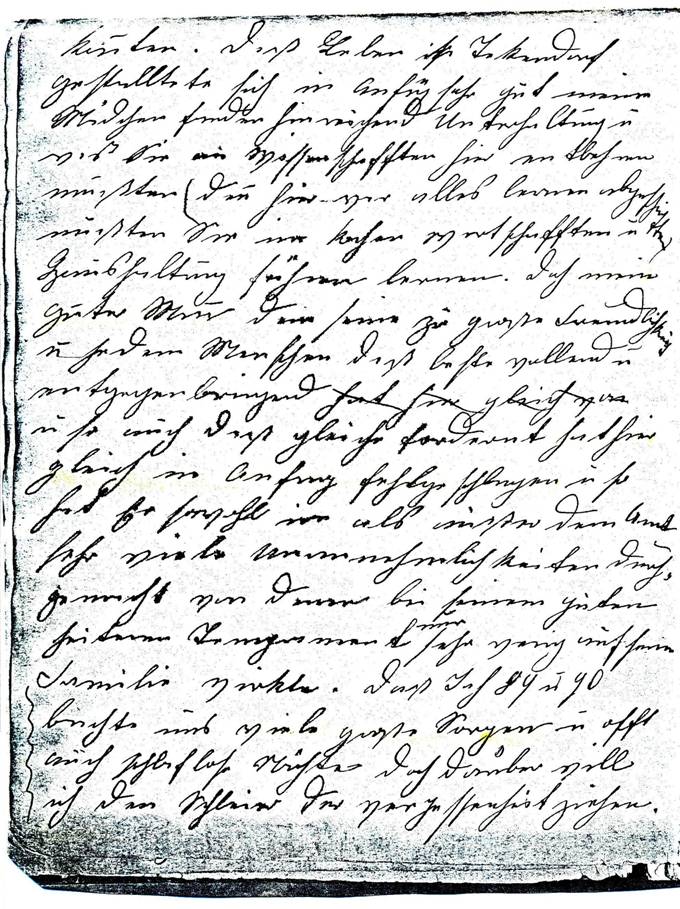 könten. Daß Leben in Tekendorf
gestalltete sich im Anfug sehr gut meine
Mädchen finden hinreichend Unterhaltung u
waß Sie an Wissenschafften hier entbehren
mußten (den hier war alles lernen abgeschnitten)
mußten Sie im kochen wirtschafften u
Haushaltung führen lernen. Doch mein
guter Man dem seine zu große Freundlichkeit
u jedem Menschen daß beste wollend u
entgegenbringend hat hier gleich von
u so auch daß gleiche fordernt hat hier
gleich im Anfug fehlgeschlagen u so
hat Er sowohl im als außer dem Amt
sehr viele Unannehmlichkeiten durch-
gemacht von denen bei seinem guten
heiteren Temprament nur sehr wenig auf seine
Familie wirkte. Daß Jah 89 u 90
brachte uns viele große Sorgen u offt
auch schlaflose Nächte doch darüber will
ich den Schleier der vergessenheit ziehen.